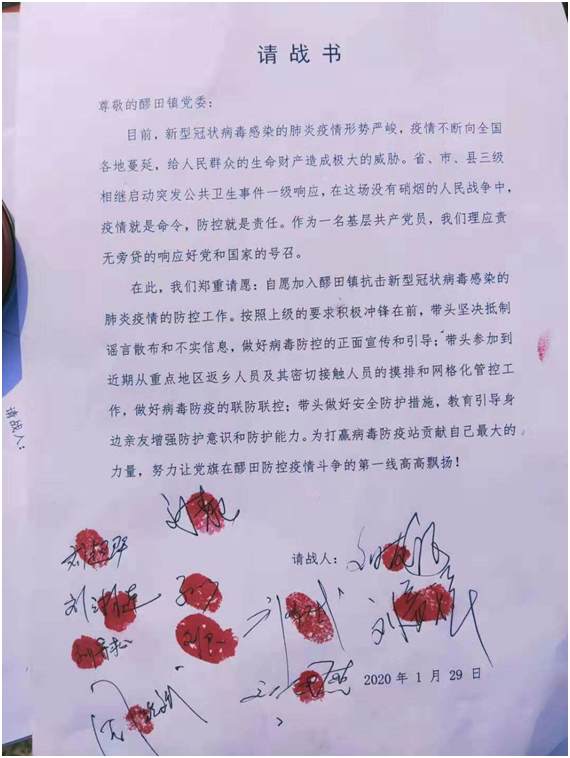 请战书
尊敬的醪田镇党委：
目前，新型冠状病毒感染的肺炎疫情形势严峻，疫情不断向全国
各地蔓延，给人民群众的生命财产造成极大的威胁。省、市、县三级
相继启动突发公共卫生事件一级响应，在这场没有硝烟的人民战争中，
疫情就是命令，防控就是责任。作为一名基层共产党员，我们理应责
无旁贷的响应好党和国家的号召。
在此，我们郑重请愿：自愿加入醪田镇抗击新型冠状病毒感染的
肺炎疫情的防控工作。按照上级的要求积极冲锋在前，带头坚决抵制
谣言散布和不实信息，做好病毒防控的正面宣传和引导；带头参加到
近期从重点地区返乡人员及其密切接触人员的摸排和网格化管控工
作，做好病毒防疫的联防联控；带头做好安全防护措施，教育引导身
边亲友增强防护意识和防护能力。为打赢病毒防疫站贡献自己最大的
力量，努力让党旗在醪田防控疫情斗争的第一线高高飘扬！
请战人：
请战人：
2020年1月29日